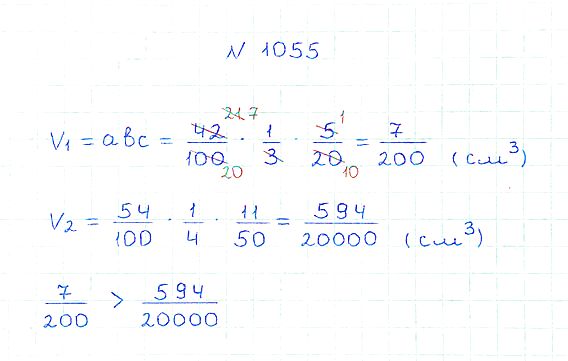 N 1055
21 7 1
V1 = abc = 42/100 · 1/3 · 5/20 = 7/200 (см³)
20 10
V2 = 54/100 · 1/4 · 11/50 = 594/20000 (см³)
7/200 > 594/20000